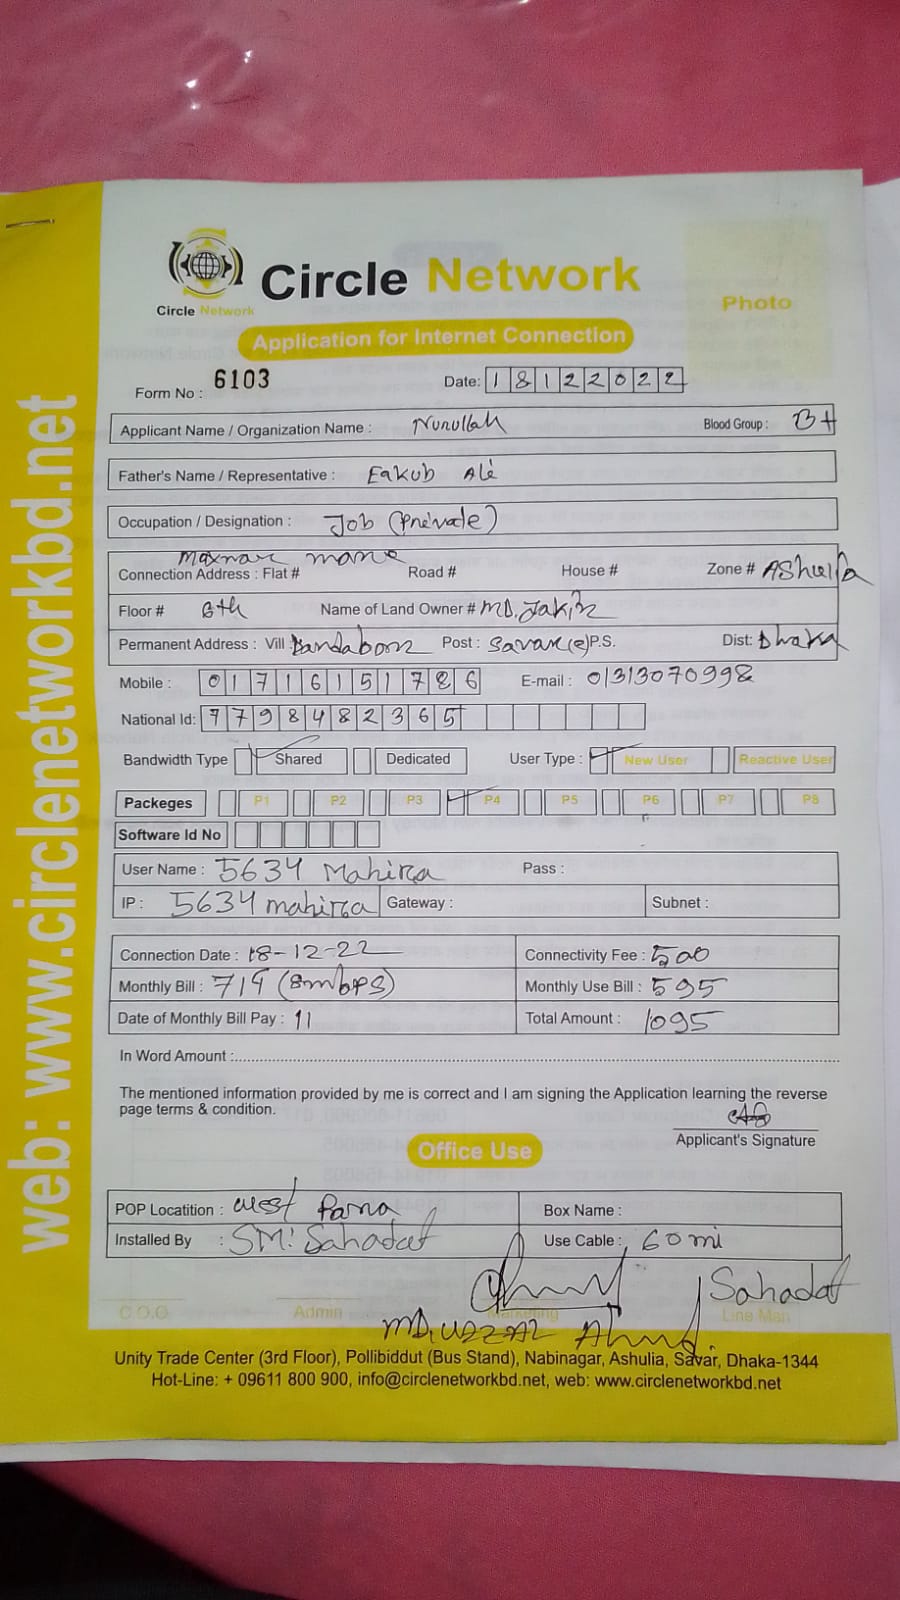 web: www.circlenetworkbd.net
Circle Network
Circle Network
Photo
Application for Internet Connection
Form No : 6103 Date: 18122022
Applicant Name / Organization Name : Nurullah Blood Group : B+
Father's Name / Representative : Eakub Ali
Occupation / Designation : Job (Private)
Connection Address : Flat # Road # House # Zone # Ashulia
Floor # 6th Name of Land Owner # MD. Jakir
Permanent Address : Vill : Post : Savar P.S. Dist: Dhaka
Mobile : 01716151786 E-mail : 01313070998
National Id: 7798482365
Bandwidth Type Shared Dedicated User Type : New User Reactive User
Packeges P1 P2 P3 P4 P5 P6 P7 P8
Software Id No
User Name : 5634 Mahira Pass :
IP : 5634 mahira Gateway : Subnet :
Connection Date : 18-12-22 Connectivity Fee : 500
Monthly Bill : 714 (8mbps) Monthly Use Bill : 595
Date of Monthly Bill Pay : 11 Total Amount : 1095
In Word Amount :
The mentioned information provided by me is correct and I am signing the Application learning the reverse
page terms & condition.
Applicant's Signature
Office Use
POP Locatition : Box Name :
Installed By : SM: Sahadat Use Cable : 60 mi
Sahadat
C.O.O Admin Marketing Line Man
MD. UZZAL Ahmed
Unity Trade Center (3rd Floor), Pollibiddut (Bus Stand), Nabinagar, Ashulia, Savar, Dhaka-1344
Hot-Line: + 09611 800 900, info@circlenetworkbd.net, web: www.circlenetworkbd.net